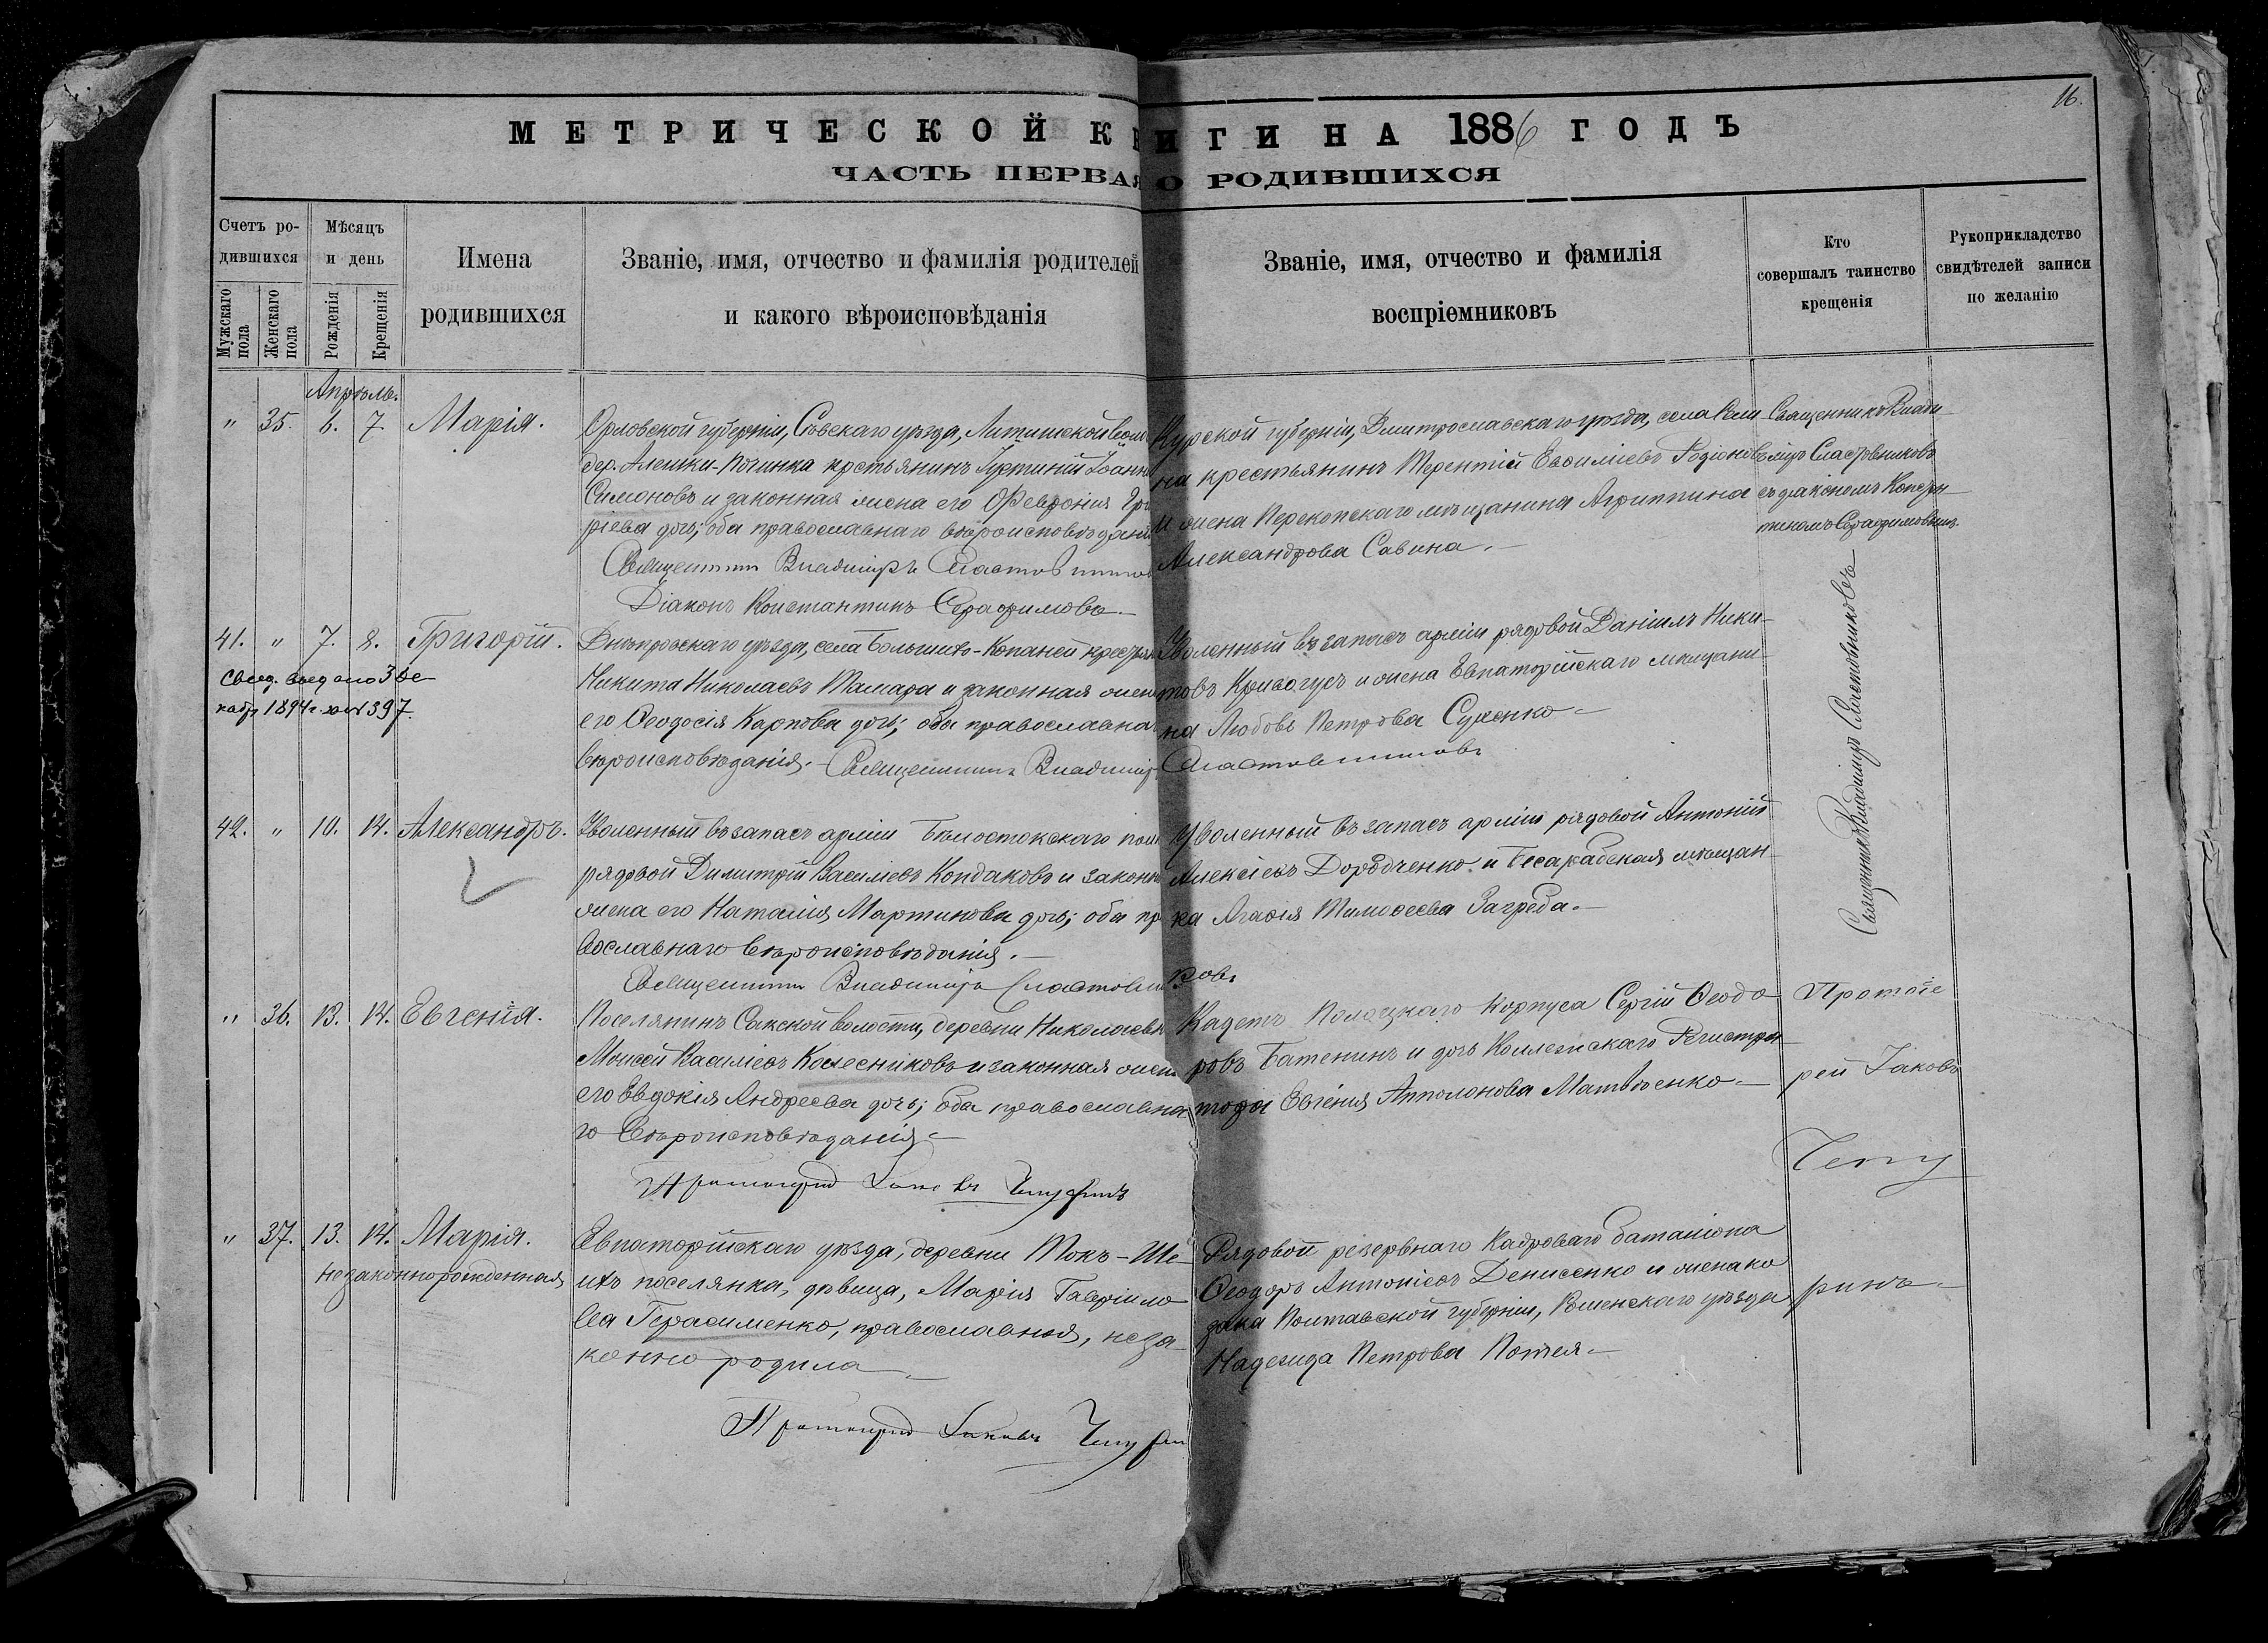 16.
МЕТРИЧЕСКОЙ КНИГИ НА 1886 ГОДЪ
ЧАСТЬ ПЕРВАЯ О РОДИВШИХСЯ
Счетъ ро-
дившихся
Мужскаго пола
Женскаго пола
Мѣсяцъ
и день
Рожденія
Крещенія
Имена
родившихся
Званіе, имя, отчество и фамилія родителей
и какого вѣроисповѣданія
Званіе, имя, отчество и фамилія
воспріемниковъ
Кто
совершалъ таинство
крещенія
Рукоприкладство
свидѣтелей записи
по желанію
Апрѣль.
" 35. 6. 7. Марія.
Орловской губерніи, Сѣвскаго уѣзда, Литижской
дер. Алешки-Починка крестьянинъ Іоанн
Симоновъ и законная жена его Февронія Гри
рієва дочь; оба православнаго вѣроисповѣданія
Священникъ Владиміръ Сластовников
Діаконъ Константинъ Серафимовъ
Курской губерніи, Дмитрославскаго уѣзда, села
на крестьянинъ Терентій Евфиміевъ Родіонов
и жена Перекопскаго мѣщанина Агриппина
Александрова Савина.
Священникъ Влади-
міръ Сластовниковъ
съ діакономъ Констан-
тиномъ Серафимовымъ.
41. " 7. 8. Григорій.
Свид. выдано 3 де-
кабр 1894 г. за № 397.
Днѣпровскаго уѣзда, села Большихъ-Копаней крестьян
Никита Николаевъ Тамара и законная жена
его Ѳеодосія Карпова дочь; оба православна
вѣроисповѣданія. Священникъ Владиміръ Сластовниковъ
Уволенный въ запасъ арміи рядовой Даніилъ Ники-
товъ Кривогузъ и жена Евпаторійскаго мѣщани-
на Любовь Петрова Сушенко
Священникъ Владиміръ Сластовниковъ
42. " 10. 14. Александръ.
Уволенный въ запасъ арміи Бѣлостокскаго пол
рядовой Димитрій Василіевъ Кондаковъ и законн
жена его Наталія Мартинова дочь; оба пра
вославнаго вѣроисповѣданія.
Священникъ Владиміръ Сластовниковъ
Уволенный въ запасъ арміи рядовой Антоній
Алексіевъ Дородченко и Бесарабская мѣщан-
ка Агафія Тимоѳеева Загреба.
" 36. 13. 14. Евгенія.
Поселянинъ Сакской волости, деревни Николаевк
Моисей Василіевъ Колесниковъ и законная жена
его Евдокія Андреева дочь; оба православна
го вѣроисповѣданія
Протоіерей Іаковъ Чепуринъ
Кадетъ Полоцкаго корпуса Сергій Ѳеодо
ровъ Батенинъ и дочь Коллежскаго Регистра-
тора Евгенія Апполонова Матвѣенко
Протоіе
рей Іаковъ
Чепу
" 37. 13. 14. Марія.
незаконнорожденная
Евпаторійскаго уѣзда, деревни Токъ-Ше-
ихъ поселянка, дѣвица, Марія Гавріило
ва Герасименко, православная, неза
конно родила
Протоіерей Іаковъ Чепурин
Рядовой резервнаго кадроваго баталіона
Ѳеодоръ Антоніевъ Денисенко и жена ко
зака Полтавской губерніи, Роменскаго уѣзда
Надежда Петрова Потея
ринъ